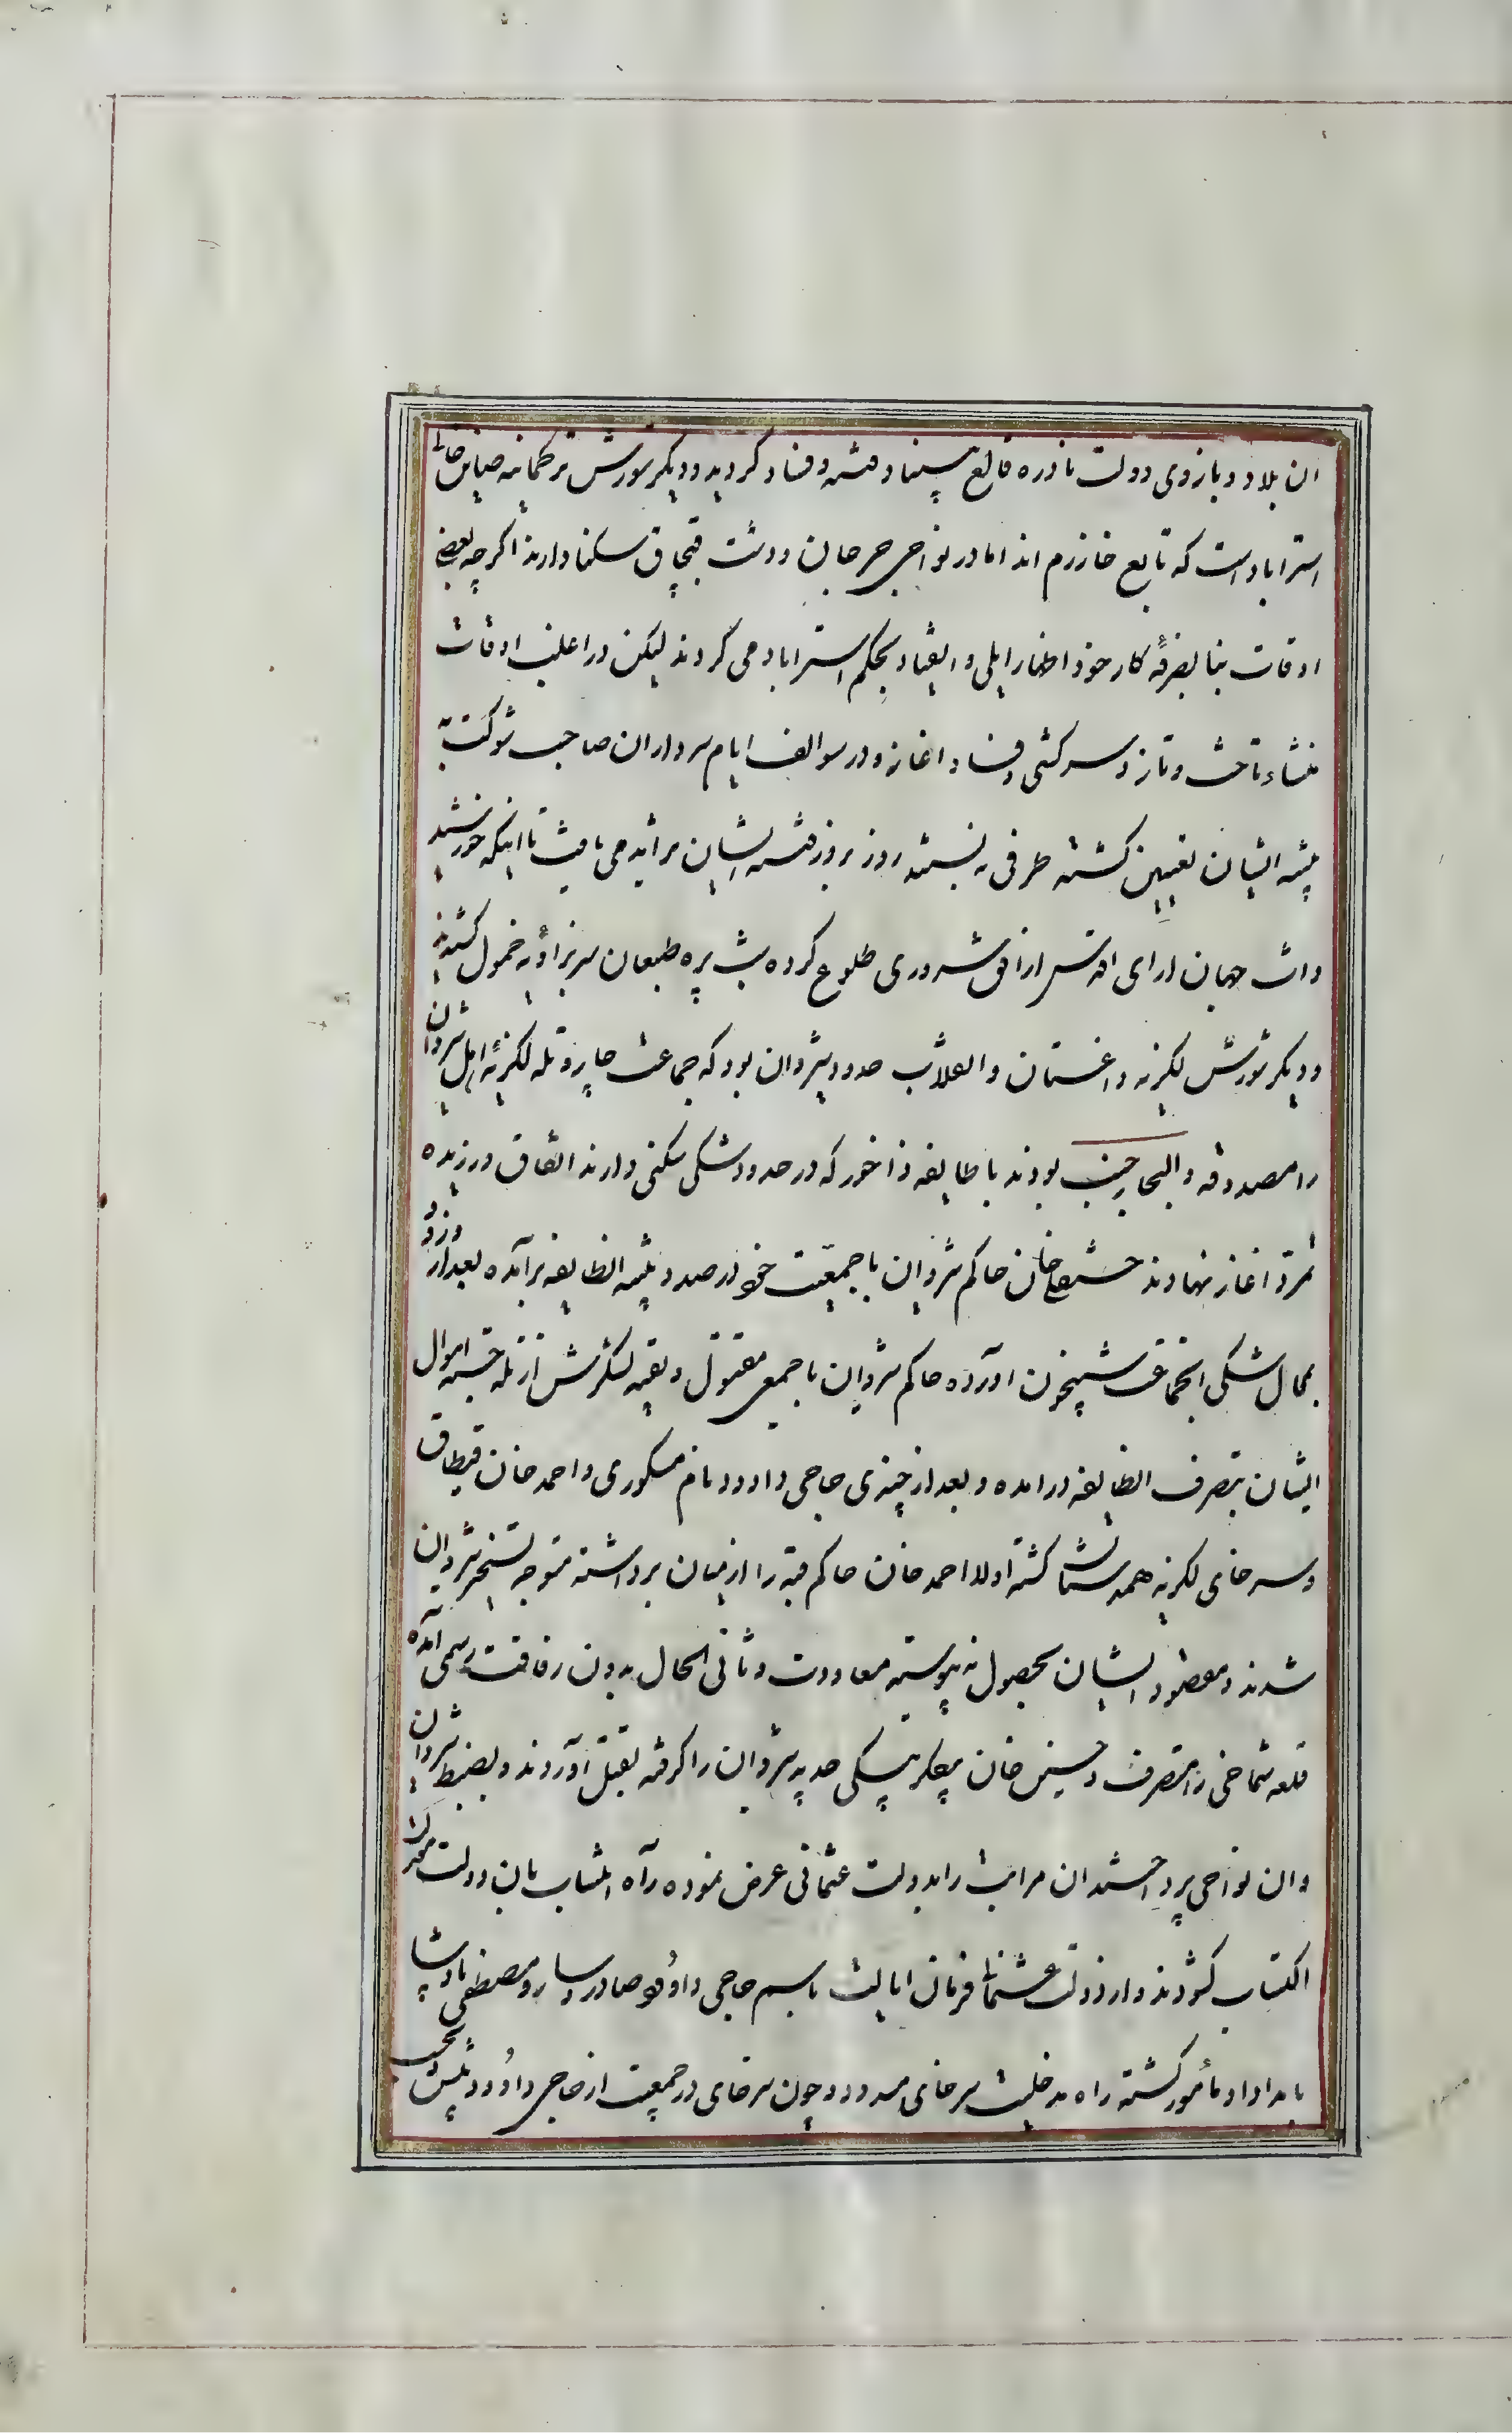 ان بلاد و بازوی دولت نادره قالع بنیاد فتنه و فساد کردید و دیکر شورش ترکمانیه صاین خانی
استراباد است که تابع خارزم اند اما در نواحی جرجان و دشت قبچاق سکنا دارند اکرچه بعضی
اوقات بنا بصرفهٔ کار خود اظهار ایلی و انقیاد بحکم استراباد می کردند لیکن در اغلب اوقات
منشاء تاخت و تاز و سرکشی و فساد اغاز و در سوالف ایام سرداران صاحب شوکت
تنبیه ایشان تعیین کشته طرفی نه بستند روز بروز فتنه ایشان تزاید می یافت تا اینکه خورشید
ذات جهان ارای اقدس از افق سروری طلوع کرده شب پره طبعان سر بزاویه خمول کشیدند
و دیکر شورش لکزیه داغستان و انقلاب حدود شروان بود که جماعت جار و تله لکزیه اهل شروان
را مصدوقه و الجار جنب بودند با طایفه زاخور که در حدود شکی سکنی دارند اتفاق ورزیده
تمرد اغاز نهادند حسنعلی خان حاکم شروان با جمعیت خود در صدد تنبیه انطایفه برآمده بعد از ورود
بمحال شکی انجماعت شبیخون آورده حاکم شروان با جمعی مقتول و بقیه لشکرش از تله جسته اموال
ایشان بتصرف انطایفه درامده و بعد از چندی حاجی داود نام مسکوری و احمد خان قیطاق
و سرخای لکزیه همداستان کشته اولا احمد خان حاکم قبه را از میان برداشته متوجه تسخیر شروان
شدند و مقصود ایشان بحصول نه پیوسته معاودت و ثانی الحال بدون رفاقت اوسمی آمده
قلعه شماخی را متصرف و حسین خان بیکلربیکی جدید شروان را کرفته بقتل آوردند و بضبط شروان
و ان نواحی پرداختند ان مراتب را بدولت عثمانی عرض نموده راه انتساب بان دولت
اکتساب کشودند و از دولت عثمانی فرمان ایالت باسم حاجی داود صادر و سارو مصطفی پادشا
بامداد او مأمور کشته راه مدخلیت سرخای مسدود و چون سرخای در جمعیت از حاجی داود در پیش